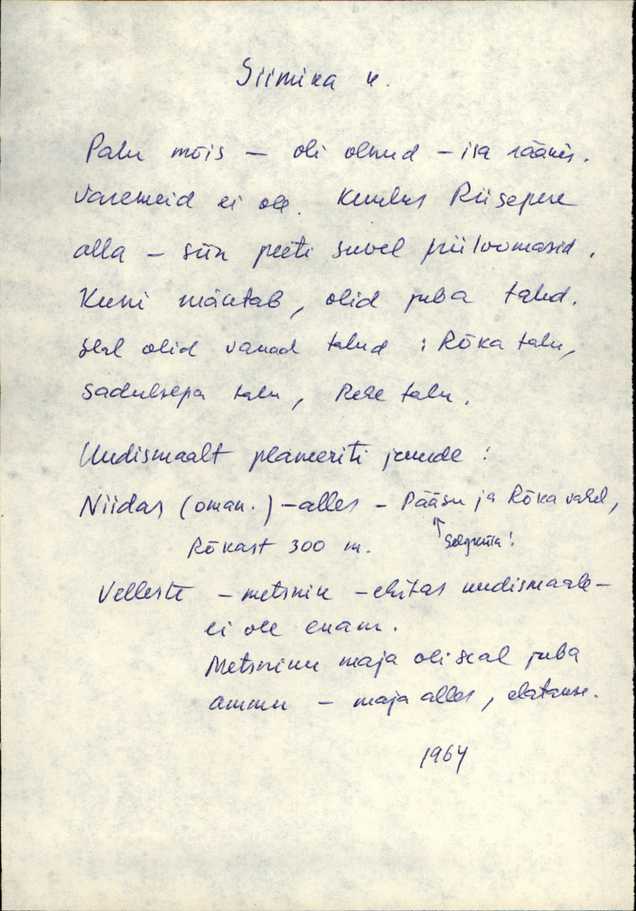 Siimika k.
Palu mõis – oli olnud – isa rääkis.
Varemeid ei ole. Kuulus Riisepere
alla – siin peeti suvel piiloomasid.
Kuni mäletab, olid juba talud.
Seal olid vanad talud : Rõka talu,
Sadulsepa talu, Rehe talu.
Uudismaalt planeeriti juurde :
Niidas (oman.) – alles – Pääsu ja Rõka vahel,
Rõkast 300 m.
Velleste – metsnik – ehitas uudismaale –
ei ole enam.
Metsniku maja oli seal juba
ammu – maja alles, elatakse.
1964